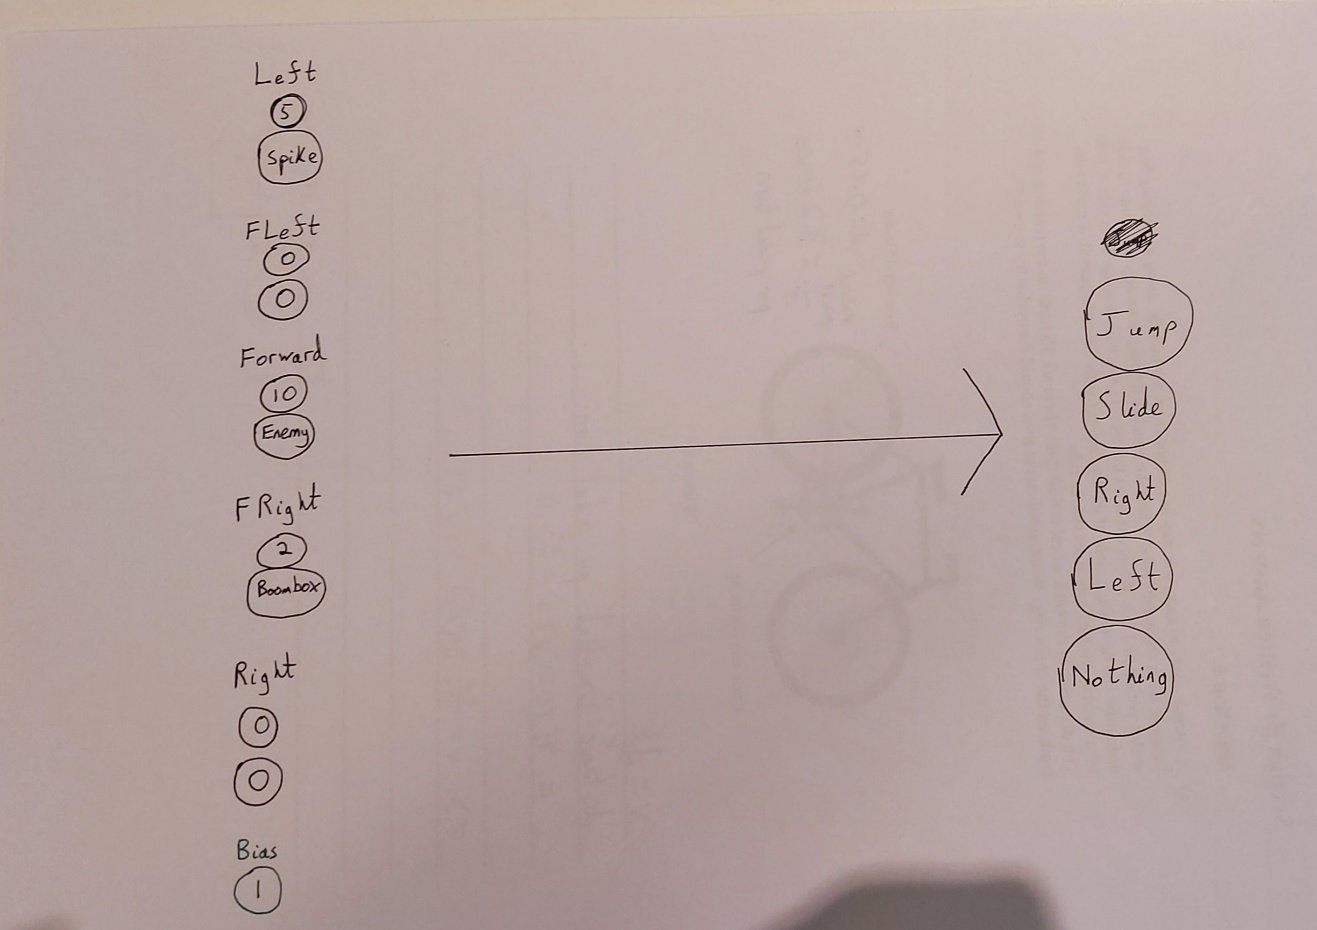 Left
5
Spike
FLeft
0
0
Forward
10
Enemy
F Right
2
Boombox
Right
0
0
Bias
1
Jump
Slide
Right
Left
Nothing